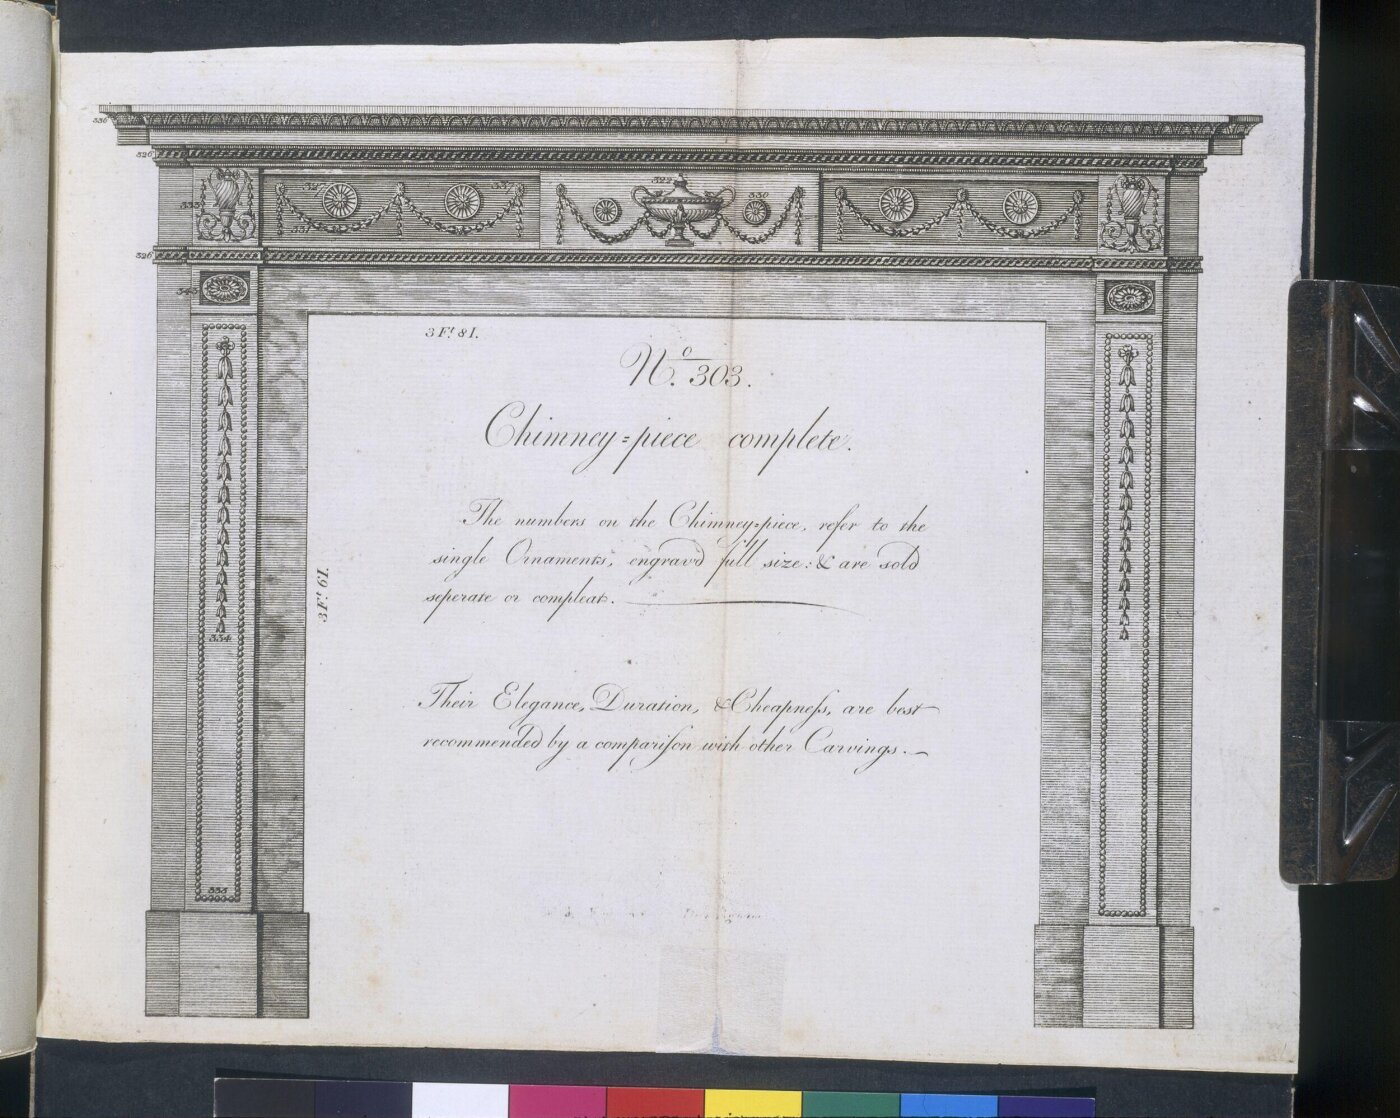 336
326
322
327
337
330
333
331
326
343
3 Ft. 8 I.
No. 303.
Chimney=piece complete.
The numbers on the Chimney=piece, refer to the
single Ornaments, engrav'd full size: & are sold
seperate or compleat.
3 Ft. 6 I.
334
Their Elegance, Duration, & Cheapneſs, are best
recommended by a compariſon with other Carvings.
335